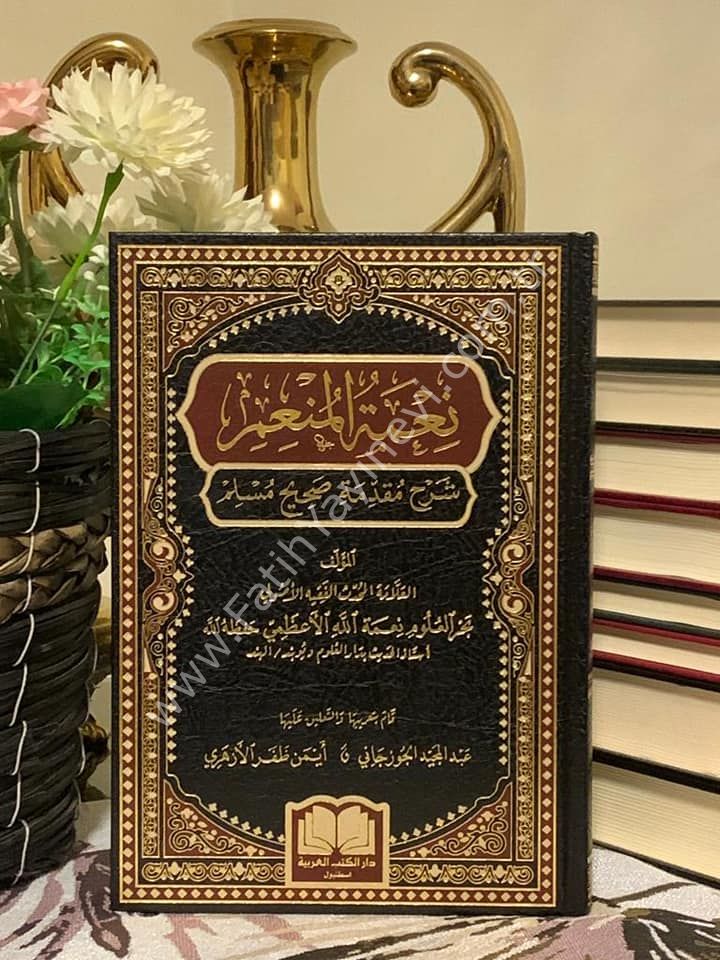 نِعْمَةُ المُنْعِمِ
شَرْح مُقَدِّمَة صَحِيح مُسْلِم
المؤلف
العلامة المحدث الفقيه الأصولي
بحر العلوم نعمة الله الأعظمي حفظه الله
أستاذ الحديث بدار العلوم ديوبند / الهند
قام بتعريبها والتعليق عليها
عبد المجيد الجوزجاني و أيمن ظفر الأزهري
دار الكتب العربية
اسطنبول
www.FatihYayinevi.com